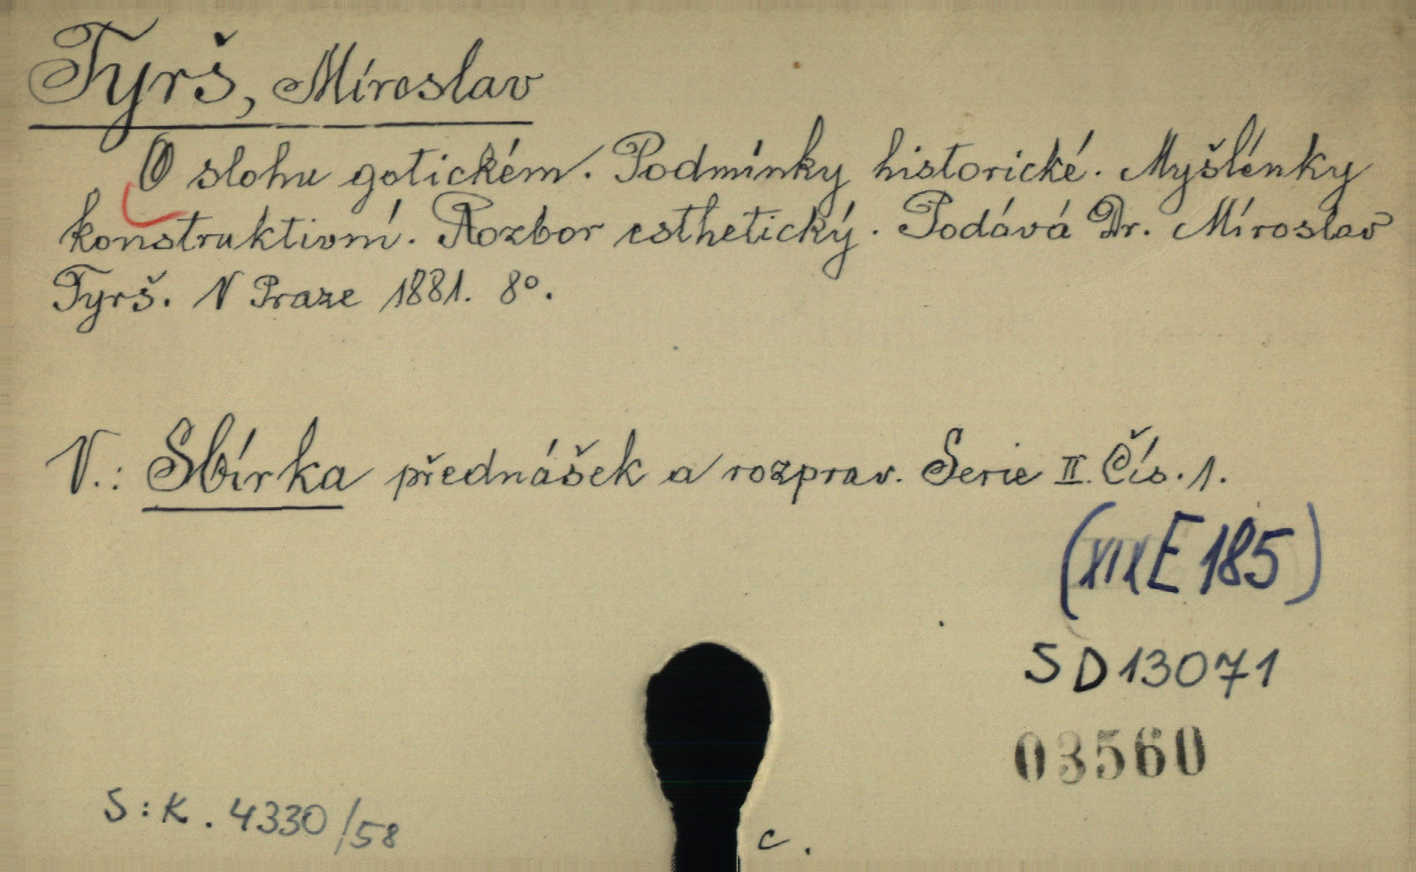 Tyrš, Miroslav
O slohu gotickém. Podmínky historické. Myšlénky
konstruktivní. Rozbor esthetický. Podává Dr. Miroslav
Tyrš. V Praze 1881. 8°.
V.: Sbírka přednášek a rozprav. Serie II. Čís. 1.
(XIX E 185)
SD13071
03560
S:K. 4330/58
c.